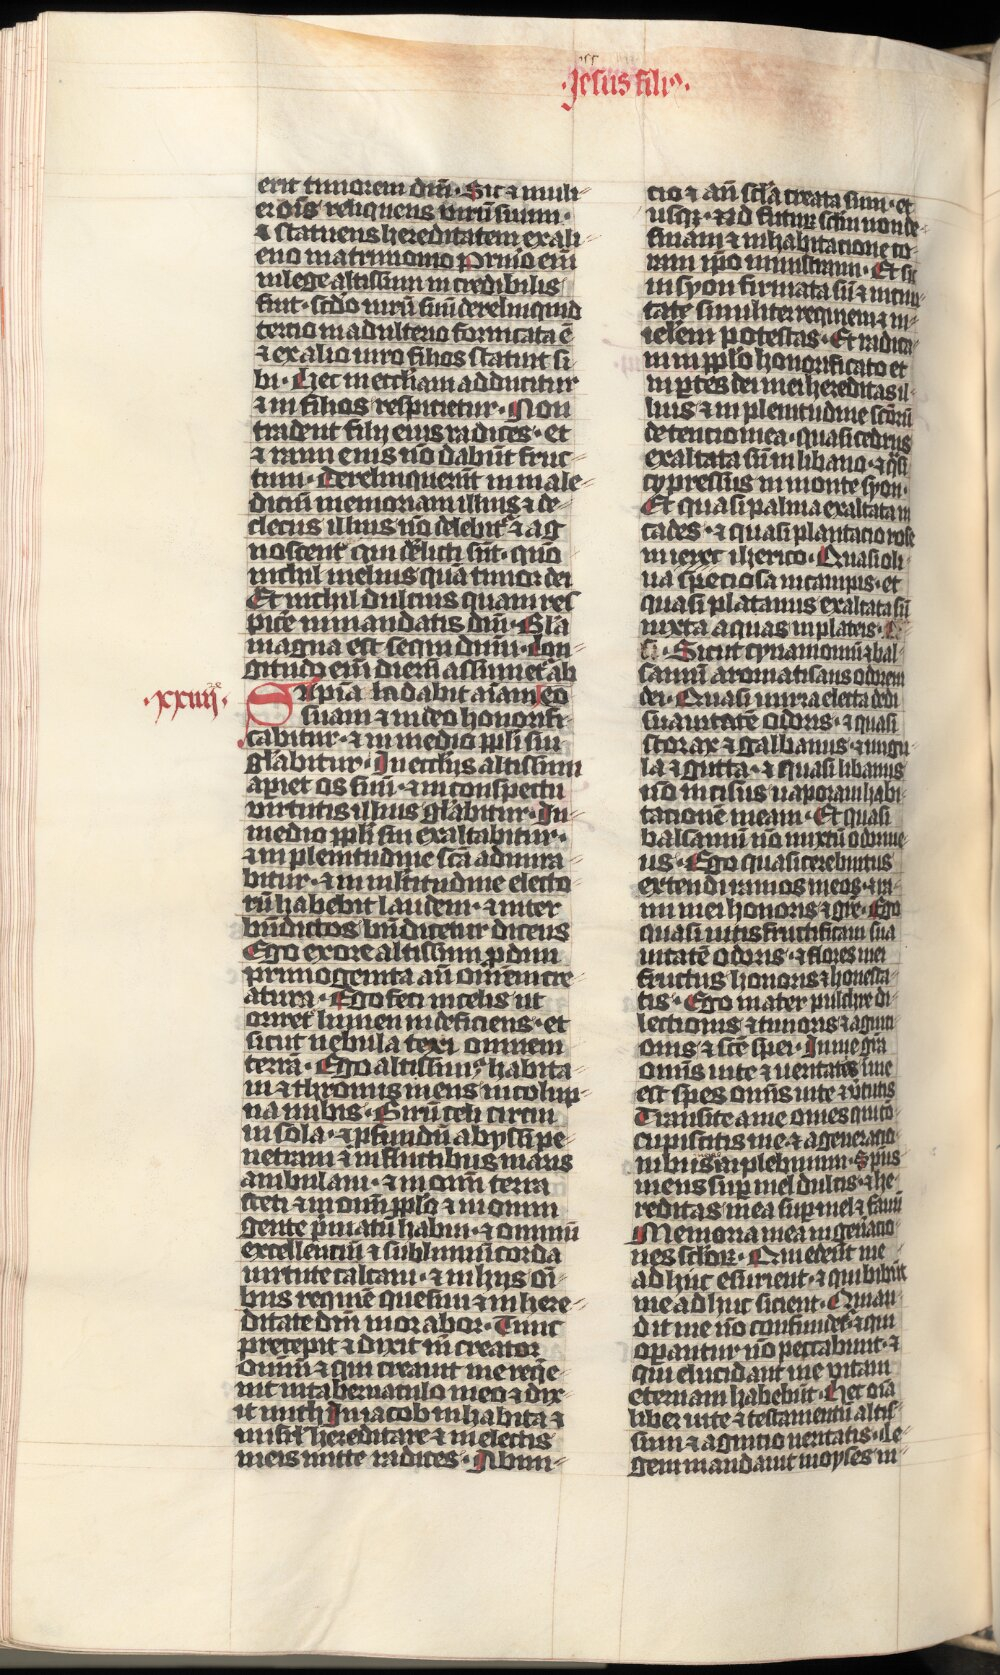 ·Jesus filiꝰ·
erit timorem dn̄i· Sic ⁊ muli
er om̄s reliquens virū suum·
⁊ statuens hereditatem ex ali
eno matrimonio Primo em̄
in lege altissimi incredibilis
fuit· scd̄o virū suū dereliquid
tercio in adulterio fornicata ē
⁊ ex alio viro filios statuit si
bi· Hec in eccl̄iam adducitur
⁊ in filios respicietur· Non
tradent filij eius radices· et
⁊ rami eius nō dabūt fruc
tum· Derelinquerūt in male
dictū memoriam illius ⁊ de
decus illius nō delebit̄ ⁊ ag
noscent qui derl̄icti sūt· qm̄
nichil melius quā timor dei
Et nichil dulcius quam res
pice in mandatis dn̄i· Gl̄a
magna est sequi dn̄m· Lon
gitudo em̄ dierū assumet̄ ab
·xxiiij·
Sapīa laudabit aīam eo
suam ⁊ in deo honorifi
cabitur· ⁊ in medio ppl̄i sui
gl̄abitur· In eccl̄ijs altissimi
apiet os suū· ⁊ in conspectu
virtutis illius gl̄abitur· In
medio ppl̄i sui exaltabitur·
⁊ in plenitudine sc̄a admira
bitur· ⁊ in multitudine electo
rū habebit laudem· ⁊ inter
bn̄dictos bn̄dicetur dicens
Ego ex ore altissimi prodiui
primogenita an̄ om̄em cre
aturā· Ego feci in celis ut
oriret̄ lumen indeficiens· et
sicut nebula texi omnem
terrā· Ego ī altissimꝭ habita
ui ⁊ thronus meus in colup
na nubis· Girū celi circui
ui sola· ⁊ pfundū abyssi pe
netraui ⁊ in fluctibus maris
ambulaui· ⁊ in omī terra
steti ⁊ in omī ppl̄o ⁊ in omni
gente p̄matū habui· ⁊ omniū
excellentiū ⁊ sublimiū corda
uirtute calcaui· ⁊ in hijs oī
bus requiē quesiui ⁊ in here
ditate dn̄i morabor· Tunc
precepit ⁊ dixit m̄ creator
omniū ⁊ qui creauit me reqe
uit in tabernaculo meo ⁊ dix
it michi In iacob inhabita ⁊
in isr̄l hereditare ⁊ in electis
meis mitte radices· Ab ini
cio ⁊ an̄ scl̄a creata sum· et
usqꝫ· ⁊ ad futurū sclm̄ non de
sinam ⁊ in habitacione co
ram ip̄o ministraui· Et sic
in syon firmata sū ⁊ in ciui
tate similiter requieui ⁊ in
ierl̄em potestas· Et radica
ui in ppl̄o honorificato et
in ptes dei mei hereditas il
lius ⁊ in plenitudine sc̄orū
detencio mea· quasi cedrus
exaltata sū in libano· ⁊ qsī
cypressus in monte syon·
Et quasi palma exaltata in
cades· ⁊ quasi plantacio rose
in ierico· Quasi oli
ua speciosa in campis· et
quasi platanus exaltata sū
iuxta aquas in plateis·
Sicut cynamomū ⁊ bal
samū aromatisans odorem
dei· Quasi mirra electa dedi
suauitatē odoris· ⁊ quasi
storax ⁊ galbanus ⁊ ungu
la ⁊ gutta· ⁊ quasi libanus
nō incisus uaporaui habi
tacionē meam· Et quasi
balsamū nō mixtū odor me
us· Ego quasi terebintus
extendi ramos meos ⁊ ra
mi mei honoris ⁊ grē· Ego
quasi uitis fructificaui sua
uitatē odoris· ⁊ flores mei
fructus honoris ⁊ honesta
tis· Ego mater pulchre di
lectionis ⁊ timoris ⁊ agniti
onis ⁊ sc̄e spei· In me gr̄a
omīs uite ⁊ ueritatis ī me
est spes omīs uite ⁊ v̄tutis
Transite a me om̄es qui cō
cupiscitis me ⁊ a generatio
nibus meis īplebimini· Spūs
meus sup mel dulcis ⁊ he
reditas mea sup mel ⁊ fauū
Memoria mea in gen̄atio
nes sclorꝝ· Qui edūt me
adhuc esurient· ⁊ qui bibūt
me adhuc sicient· Qui au
dit me nō confundet̄ ⁊ qui
opantur nō peccabunt· ⁊
qui elucidant me vitam
eternam habebūt· Hec oīa
liber uite ⁊ testamentū altis
simi ⁊ agnitio ueritatis· Le
gem mandauit moyses in